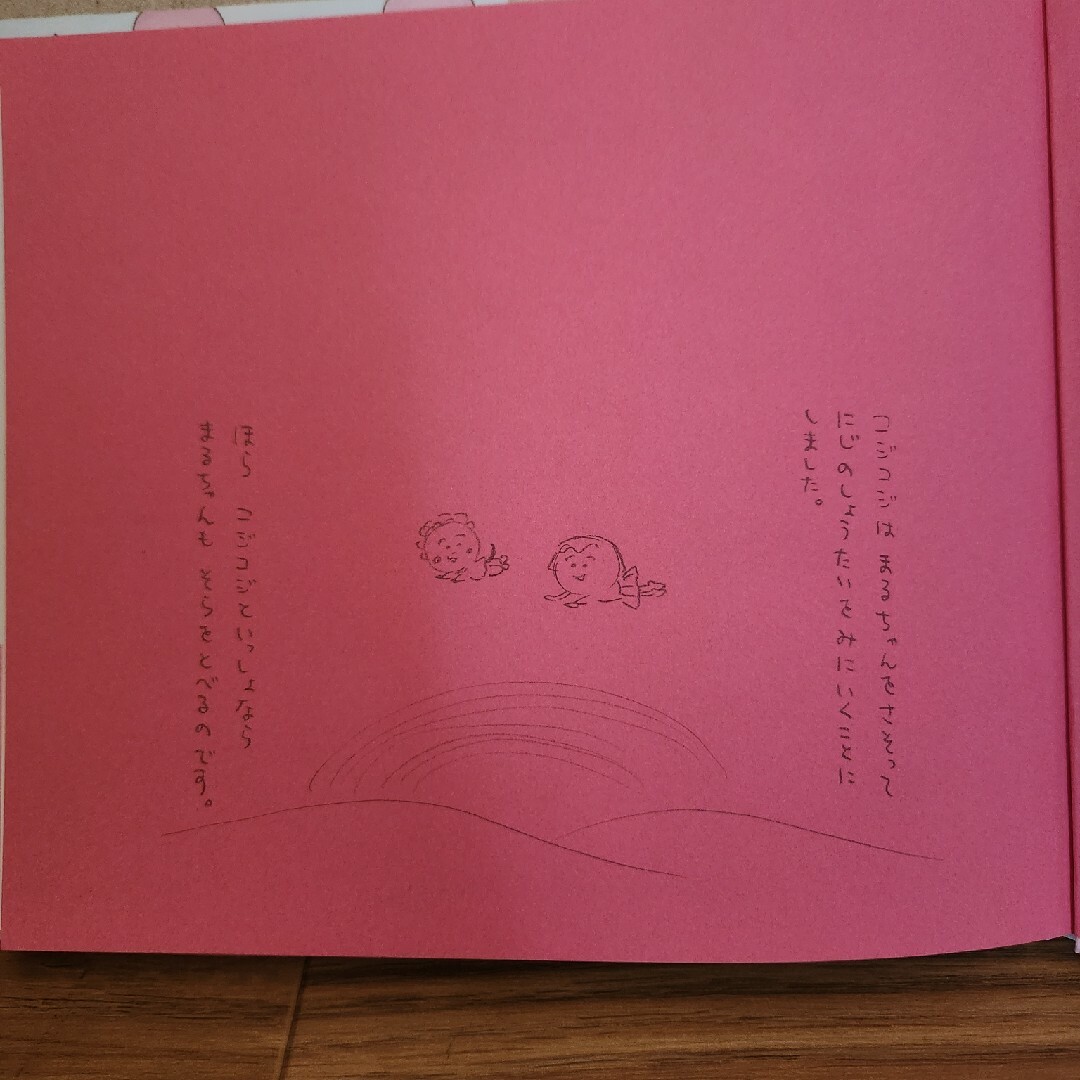 コジコジは まるちゃんをさそって
にじのしょうたいをみにいくことに
しました。
ほら コジコジといっしょなら
まるちゃんも そらをとべるのです。